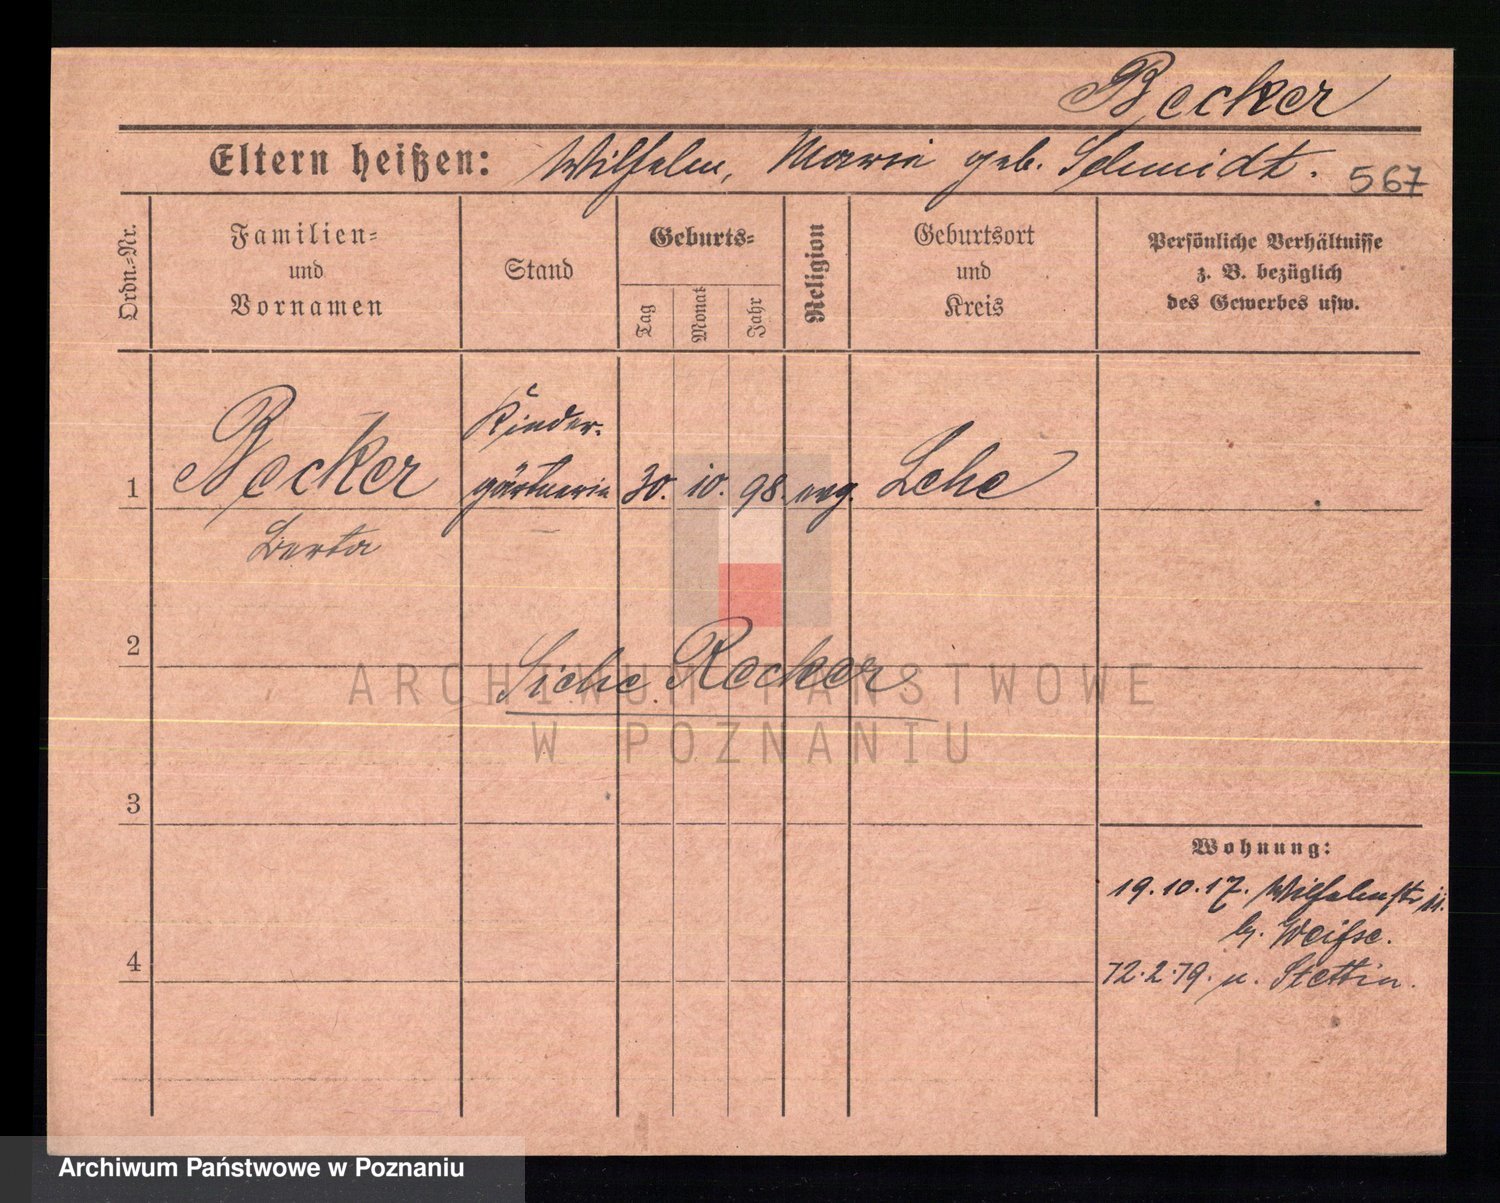 Becker
Eltern heißen: Wilhelm, Marie geb. Schmidt.
567
Ordn.=Nr.
Familien=
und
Vornamen
Stand
Geburts=
Tag
Monat
Jahr
Religion
Geburtsort
und
Kreis
Persönliche Verhältnisse
z. B. bezüglich
des Gewerbes usw.
1
Becker
Berta
Kinder-
gärtnerin
30. 10. 98. evg. Lehe
2
Siehe Recker
ARCHIWUM PAŃSTWOWE
W POZNANIU
3
Wohnung:
19.10.17. Wilhelmstr
b. Weiße.
12.2.19. n. Stettin.
4
Archiwum Państwowe w Poznaniu